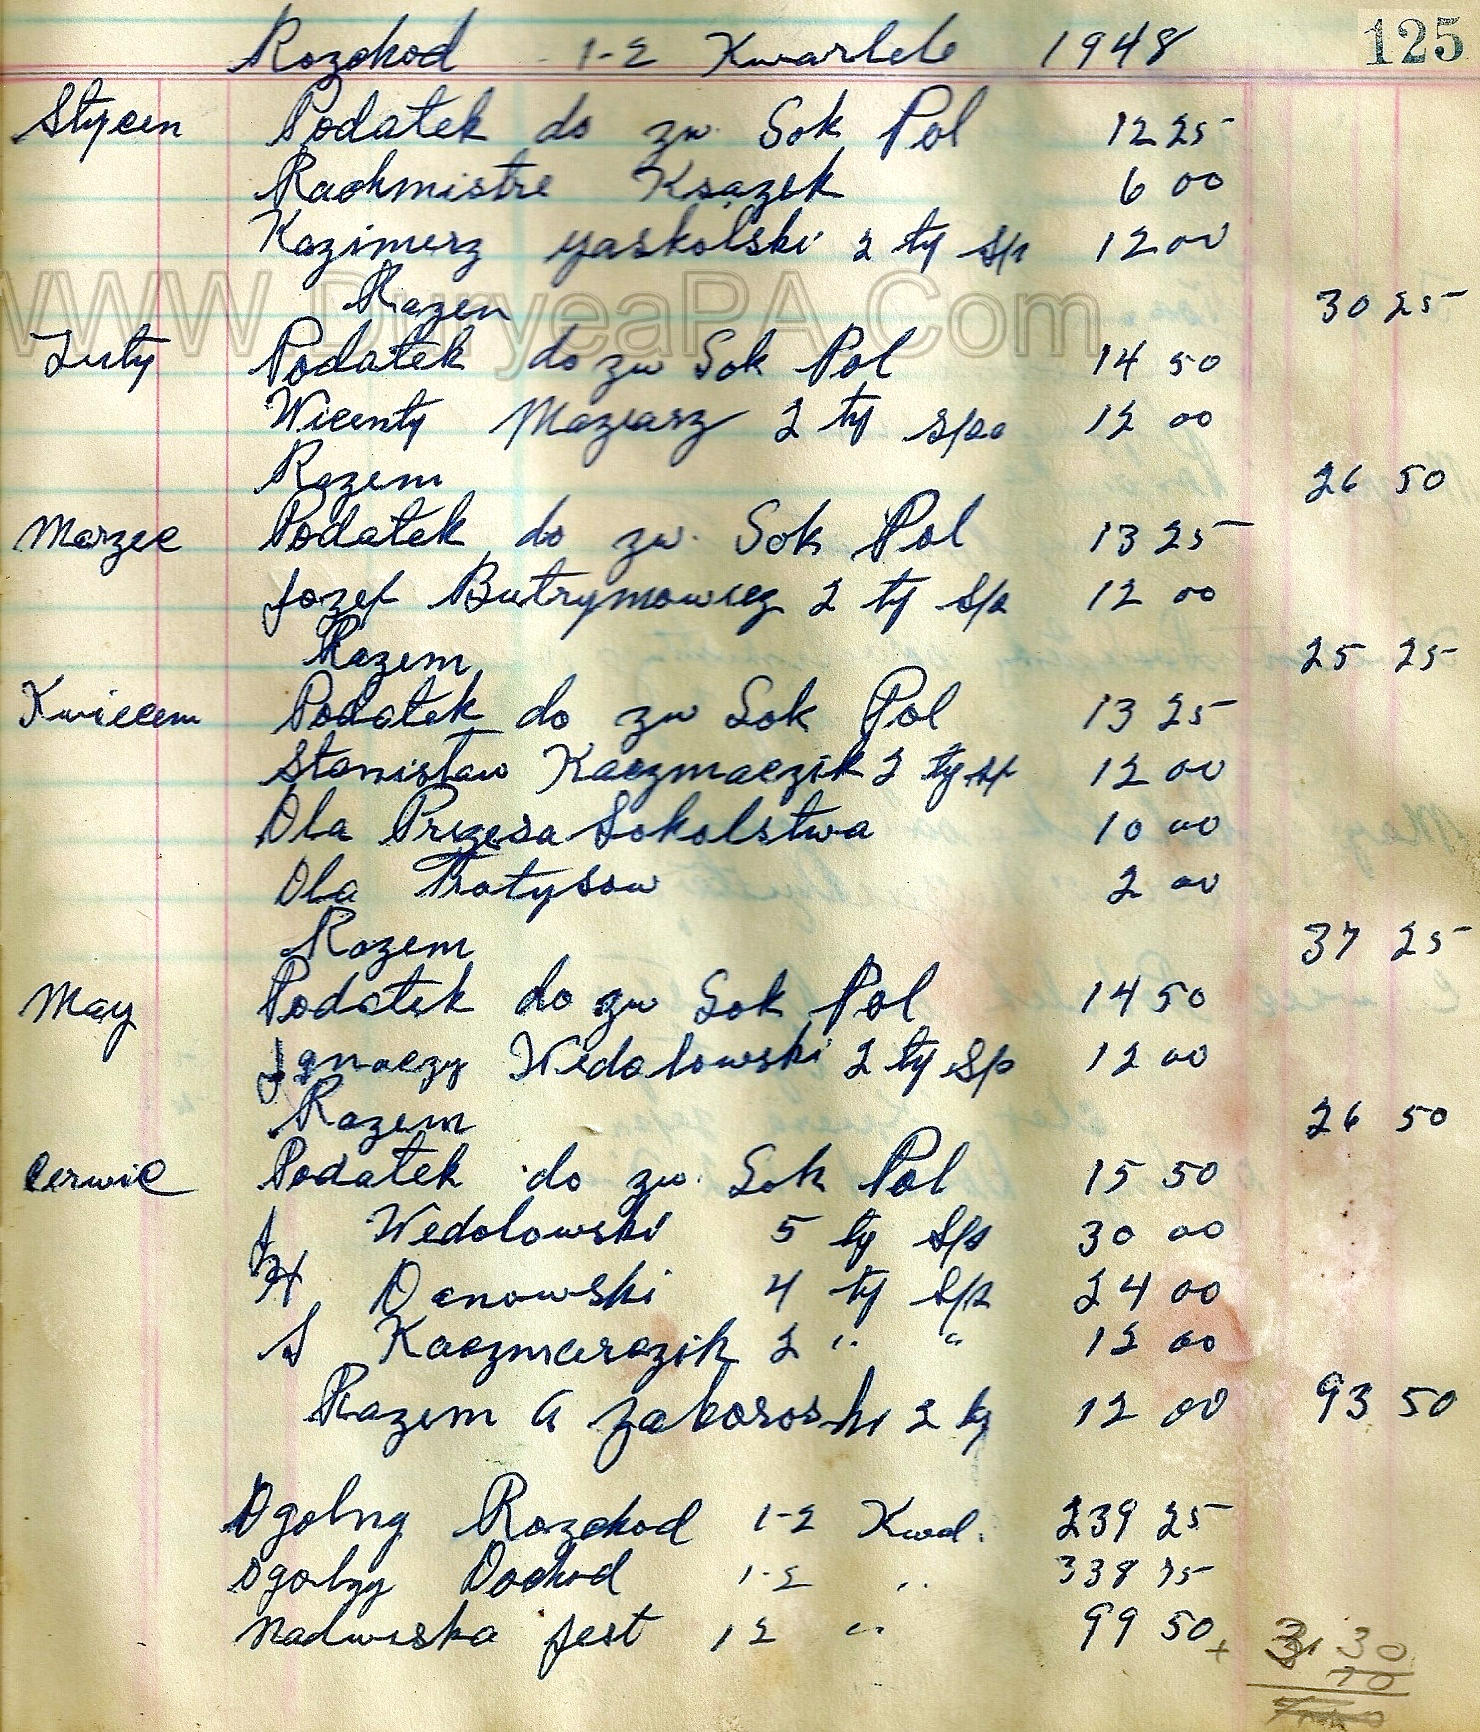 125
Rozchod 1-2 Kwartele 1948
Stycen Podatek do zw. Sok Pol 12 25
Rachmistre Ksazek 6 00
Kazimerz yaskolski 2 ty 12 00
Razen 30 25
www.DuryeaPA.Com
Luty Podatek do zw Sok Pol 14 50
Wicenty Maziarz 2 ty 12 00
Razem 26 50
Marzec Podatek do zw. Sok Pol 13 25
Jozef Butrymowicz 2 ty Spa 12 00
Razem 25 25
Kwiecem Podatek do zw Sok Pol 13 25
Stanistaw Kaczmaczik 2 ty sp 12 00
Dla Prezesa Sokolstwa 10 00
Dla 2 00
Razem 37 25
May Podatek do zw Sok Pol 14 50
Ignaczy Wedolowski 2 ty Sp 12 00
Razem 26 50
Cerwic Podatek do zw. Sok Pol 15 50
J Wedolowski 5 ty Sps 30 00
Danowski 4 ty Spa 24 00
S Kaczmarczik 2 " " 12 00
Razem A Zaboroski 2 ty 12 00 93 50
Ogolny Rozchod 1-2 Kwal. 239 25
Ogolny Dochod 1-2 " 338 75
Nadwiska jest 12 " 99 50 +
30
70